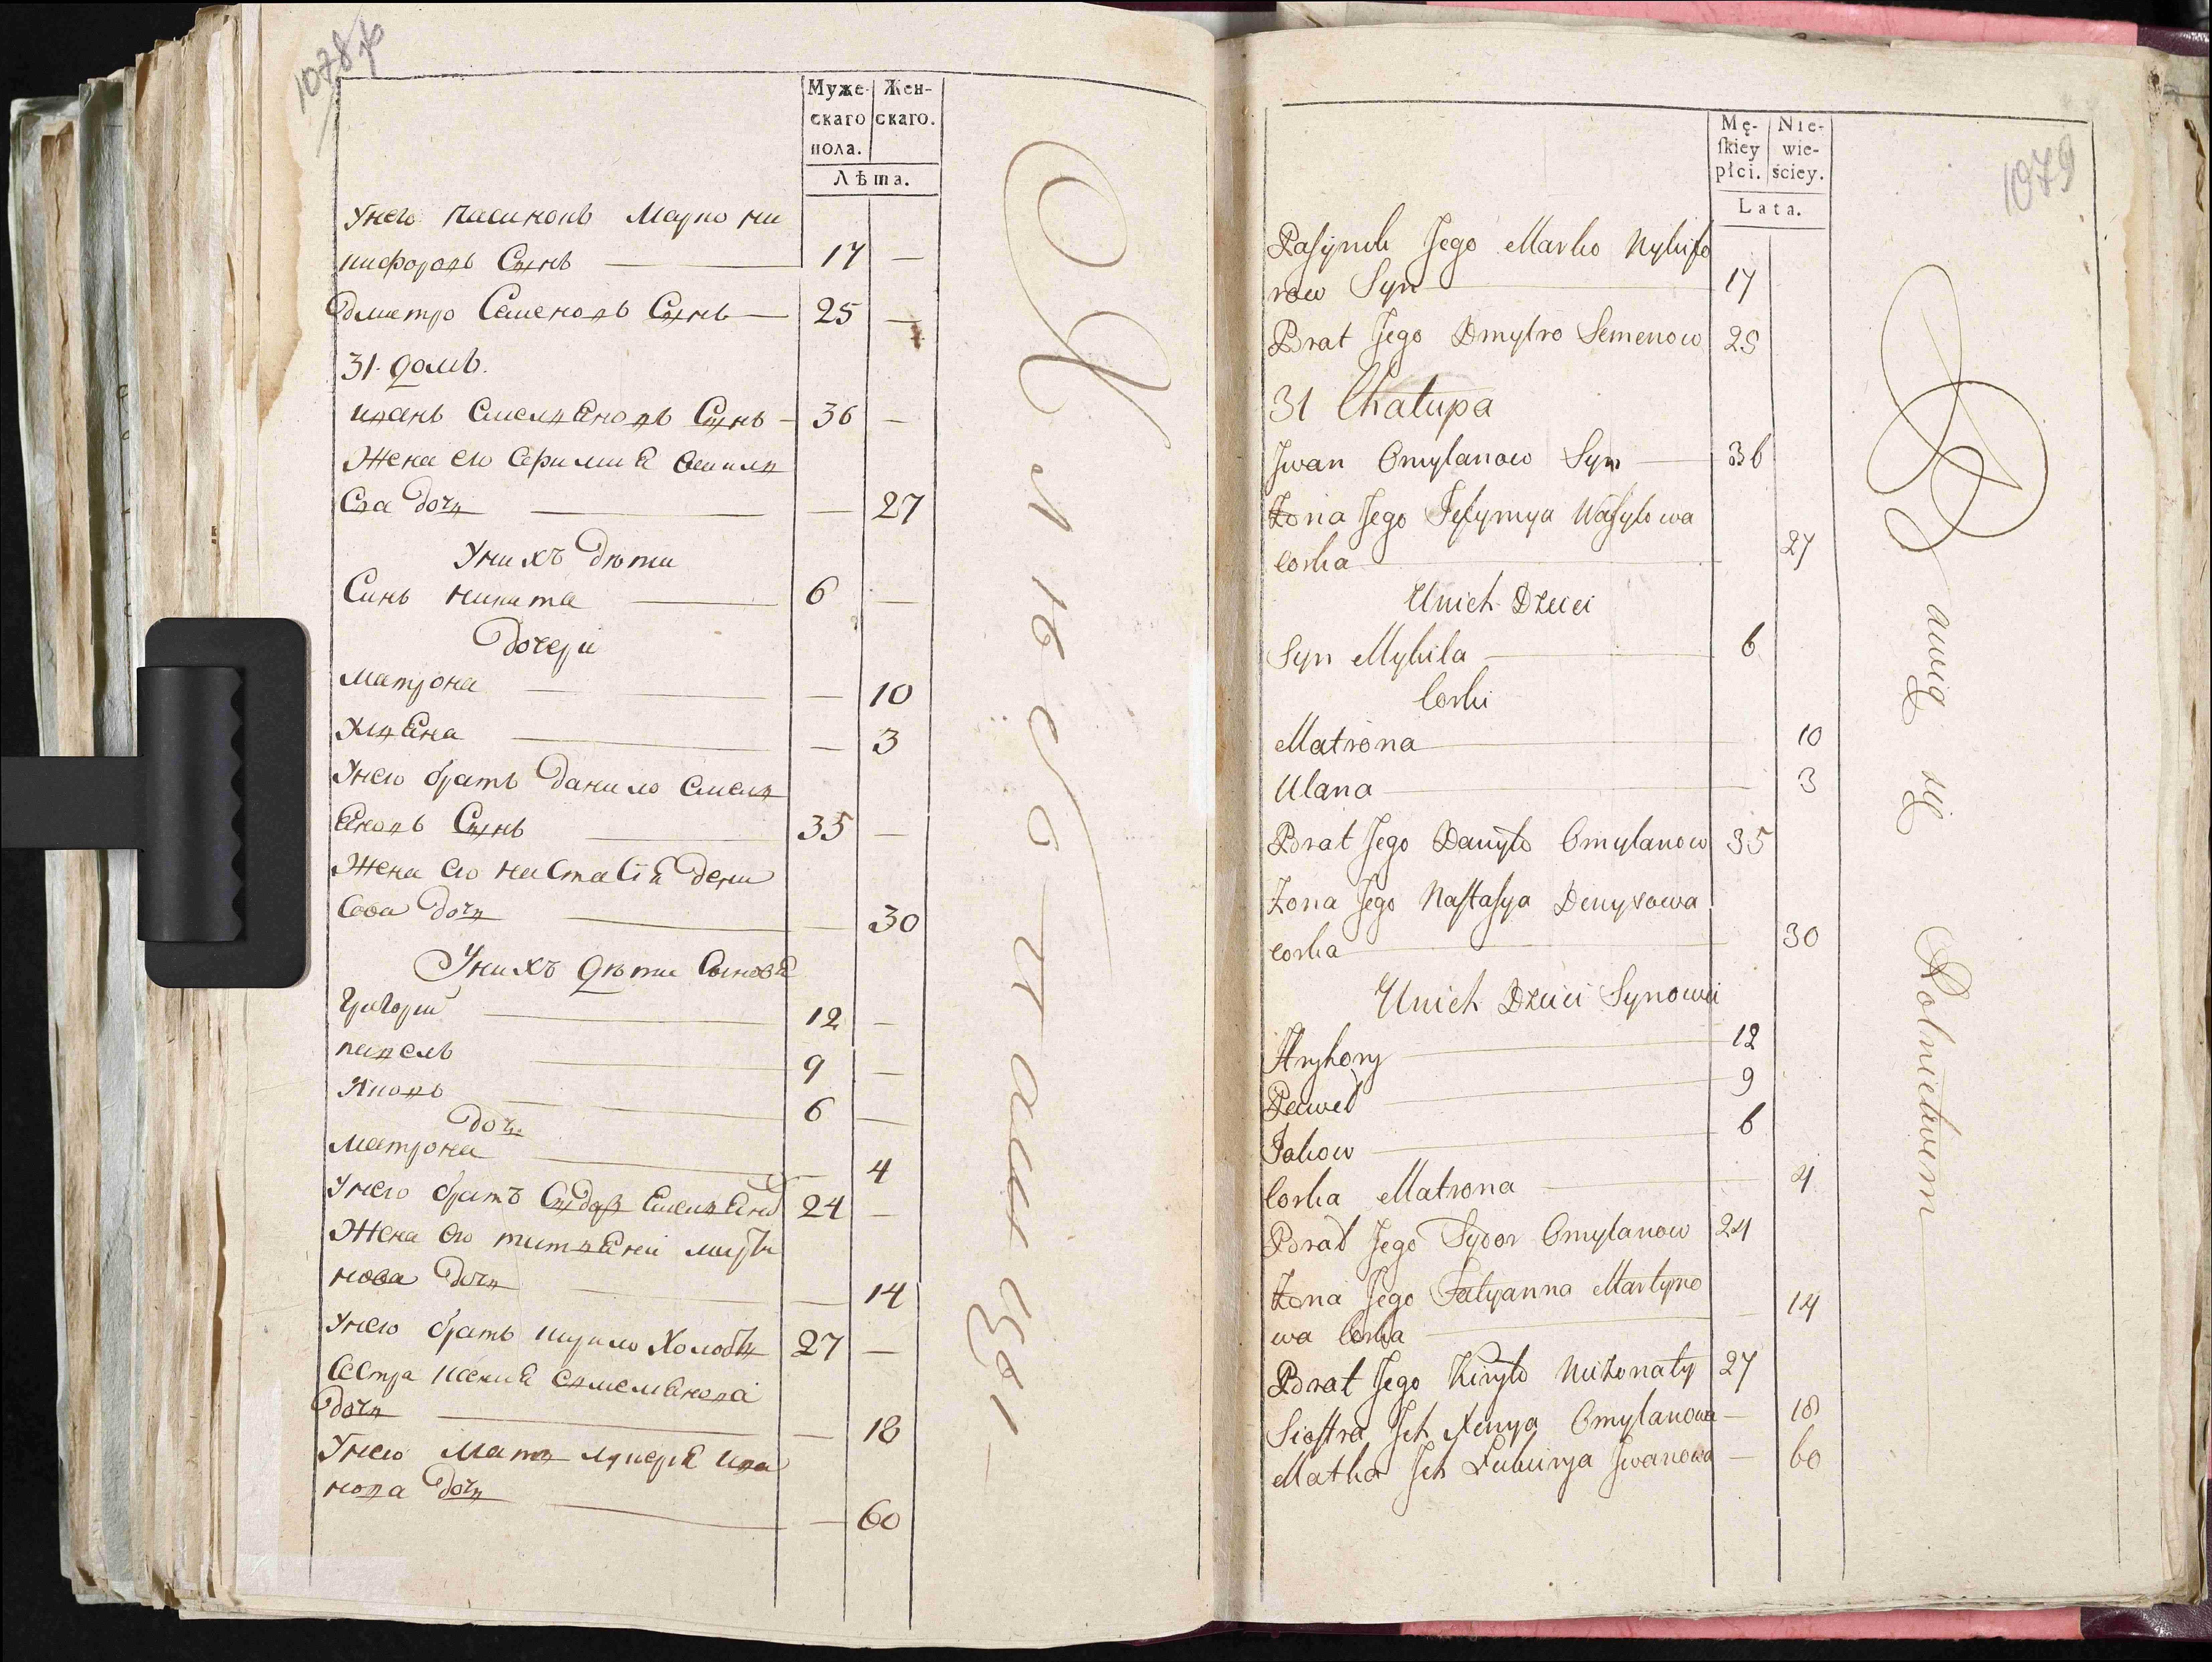 1078
Муже- Жен-
скаго скаго.
пола.
Лѣта.
Унего пасинокъ Марко ни
кифоровъ Синъ 17 —
Дмитро Семеновъ Синъ 25 —
31. домъ.
иванъ Емеляновъ Синъ 36 —
Жена его Ефимия Васили
Ева дочь — 27
Унихъ дѣти
Синъ никита 6 —
дочери
Матрона — 10
Уляна — 3
Унего братъ данило Емели
яновъ Синъ 35 —
Жена его настасія дени
сова дочь — 30
Унихъ дѣти Синовя
Григорий 12 —
павелъ 9 —
Яковъ 6 —
дочь
Матрона — 4
Унего братъ Сидоръ Емеляно 24 —
Жена его титяна марти
нова дочь — 14
Унего братъ кирило Холостъ 27 —
Сестра ксения Емелянова
дочь — 18
Унего мать лукеря ива
нова дочь — 60
1079
Mę- Nie-
ſkiey wie-
płci. ściey.
Lata.
Paſynok Jego Marko Nykifo
row Syn 17
Brat Jego Dmytro Semenow 25
31 Chałupa
Jwan Omylanow Syn 36
Żona Jego Jefymya Waſylowa
corka 27
Unich Dzieci
Syn Mykila 6
Corki
Matrona 10
Ulana 3
Brat Jego Danyło Omylanow 35
Żona Jego Naſtaſya Denysowa
corka 30
Unich Dzieci Synowei
Hryhory 12
Paweł 9
Jakow 6
Corka Matrona 4
Brat Jego Sydor Omylanow 24
Żona Jego Tatyanna Martyno
wa Corka 14
Brat Jego Kiryło Nieżonaty 27
Sioſtra Jch Xenya Omylanowa — 18
Matka Jch Jwanowa — 60
bawią się Rolnictwem